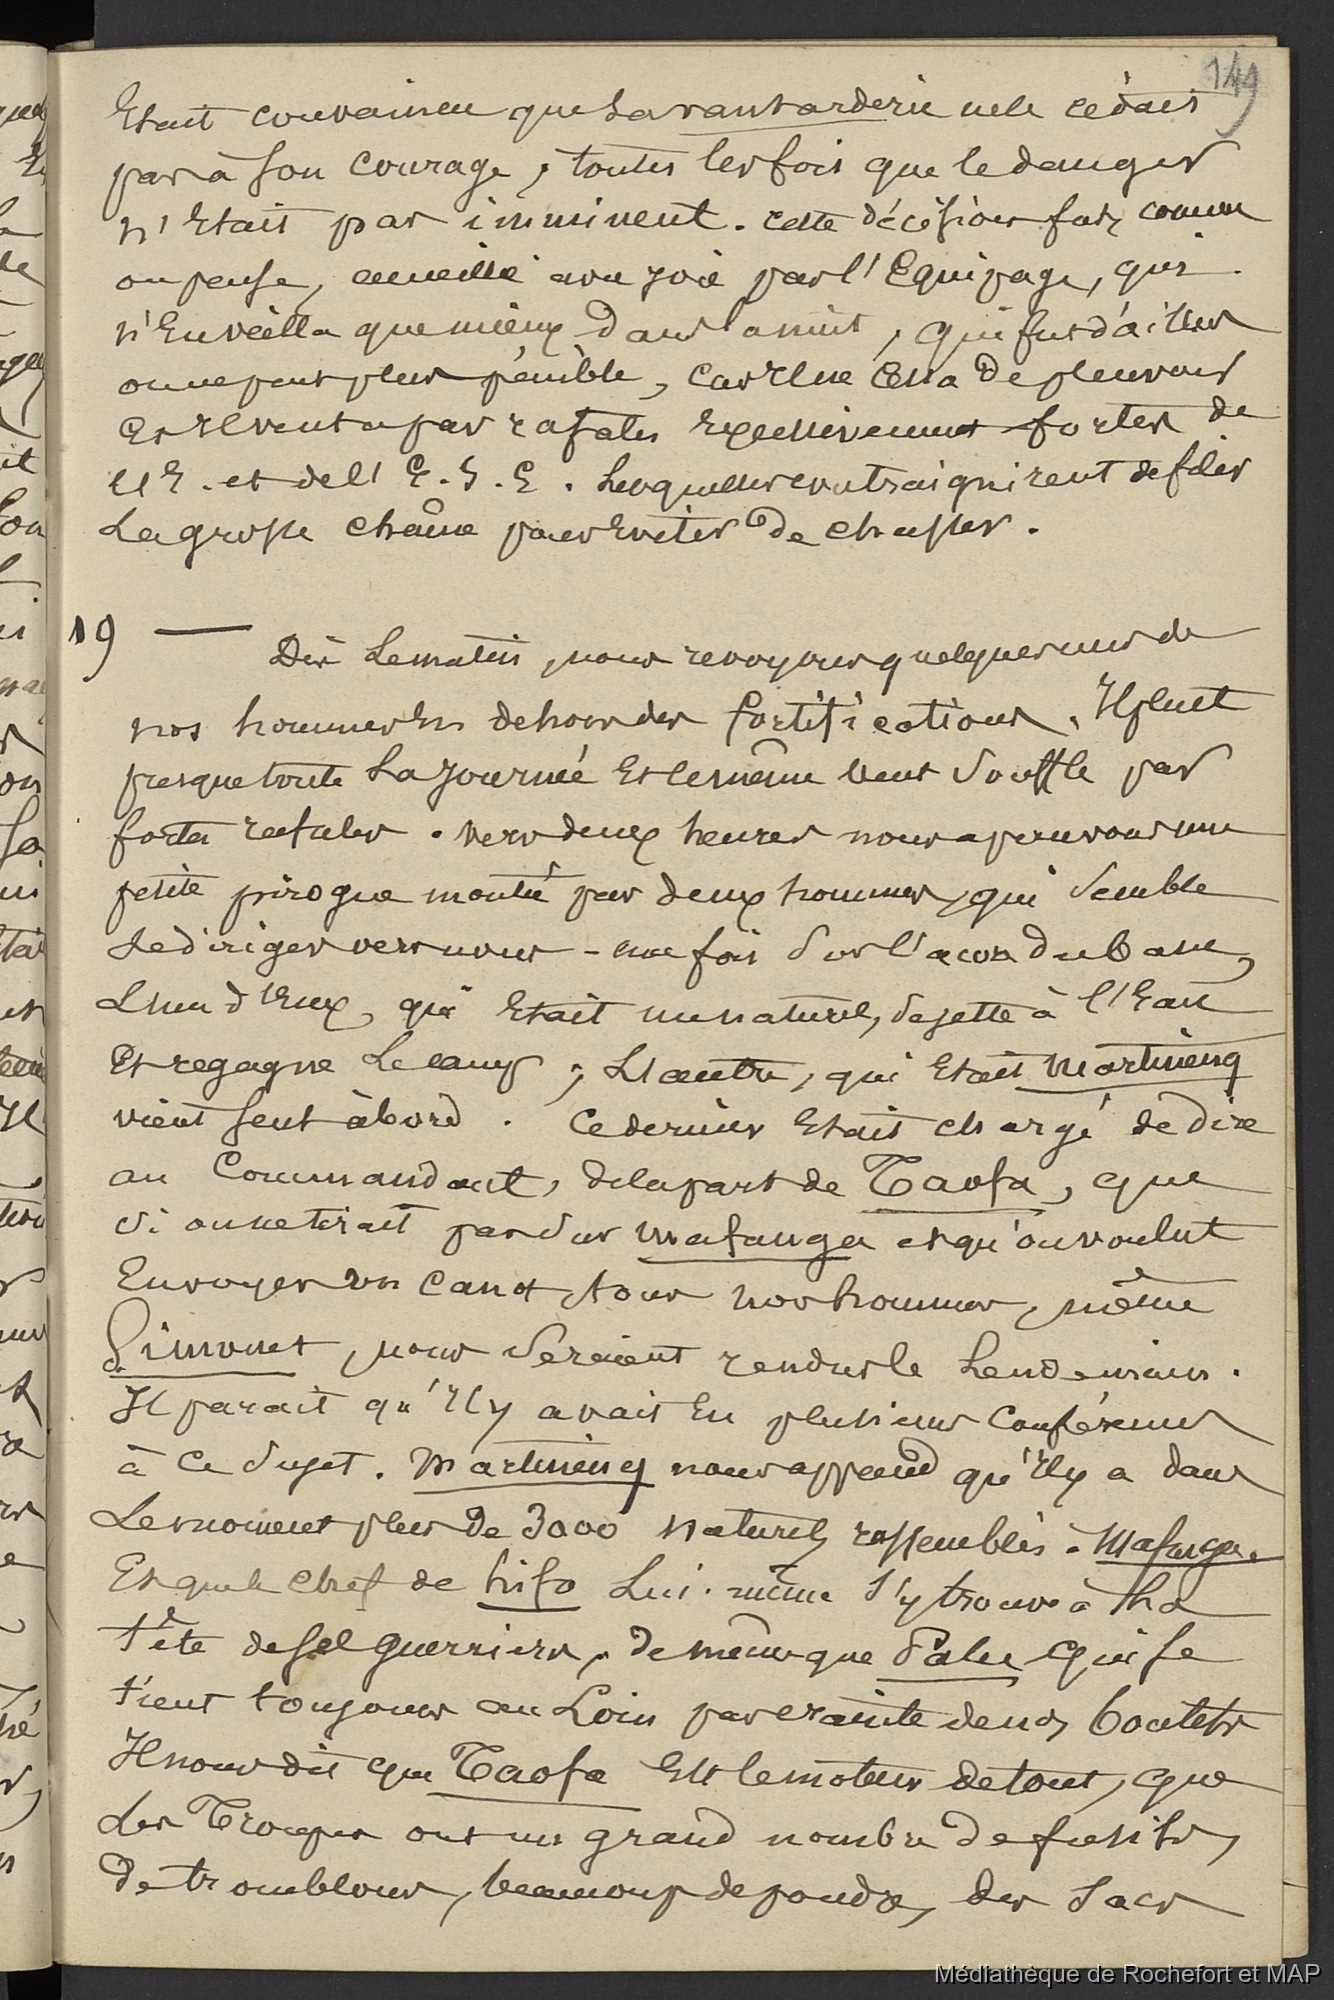 149
Etait convaincu que sa vantarderie ne le cédait
pas à son courage, toutes les fois que le danger
n'Etait pas imminent. Cette décision fut, comme
on pense, accueillie avec joie par l'Equipage, qui
n'En veilla que mieux dans la nuit, qui fut d'ailleurs
on ne peut plus pénible, car Il ne cessa de pleuvoir
Et Il venta par rafales Excessivement fortes de
l'E. et de l'E.S.E. Lesquelles contraignirent de filer
La grosse chaîne pour Eviter de chasser.
19 — Dès Le matin, nous revoyons quelques uns de
nos hommes En dehors des fortifications. Il pleut
presque toute La journée Et le même vent souffle par
fortes rafales. Vers deux heures nous apercevons une
petite pirogue montée par deux hommes, qui semble
se diriger vers nous - une fois sur l'acore du banc,
L'un d'Eux, qui Etait un naturel, se jette à l'Eau
Et regagne Le camp ; L'autre, qui Etait Martineng
vient seul à bord. Ce dernier Etait chargé de dire
au Commandant, de la part de Taofa, que
si on ne tirait pas sur Mafanga et qu'on voulut
Envoyer un canot, tous nos hommes, même
Simonet, nous seraient rendus le Lendemain.
Il parait qu'Il y avait Eu plusieurs Conférences
à ce sujet. Martineng nous apprend qu'Il y a dans
Le moment plus de 3000 naturels rassemblés à Mafanga.
Et que le chef de hifo Lui-même s'y trouve à La
tête de ses Guerriers, de même que Palu qui se
tient toujours au Loin par crainte de nos boulets
Il nous dit que Taofa Est le moteur de tout, que
Les Troupes ont un grand nombre de fusils,
De tromblons, beaucoup de poudre, des sacs
Médiathèque de Rochefort et MAP